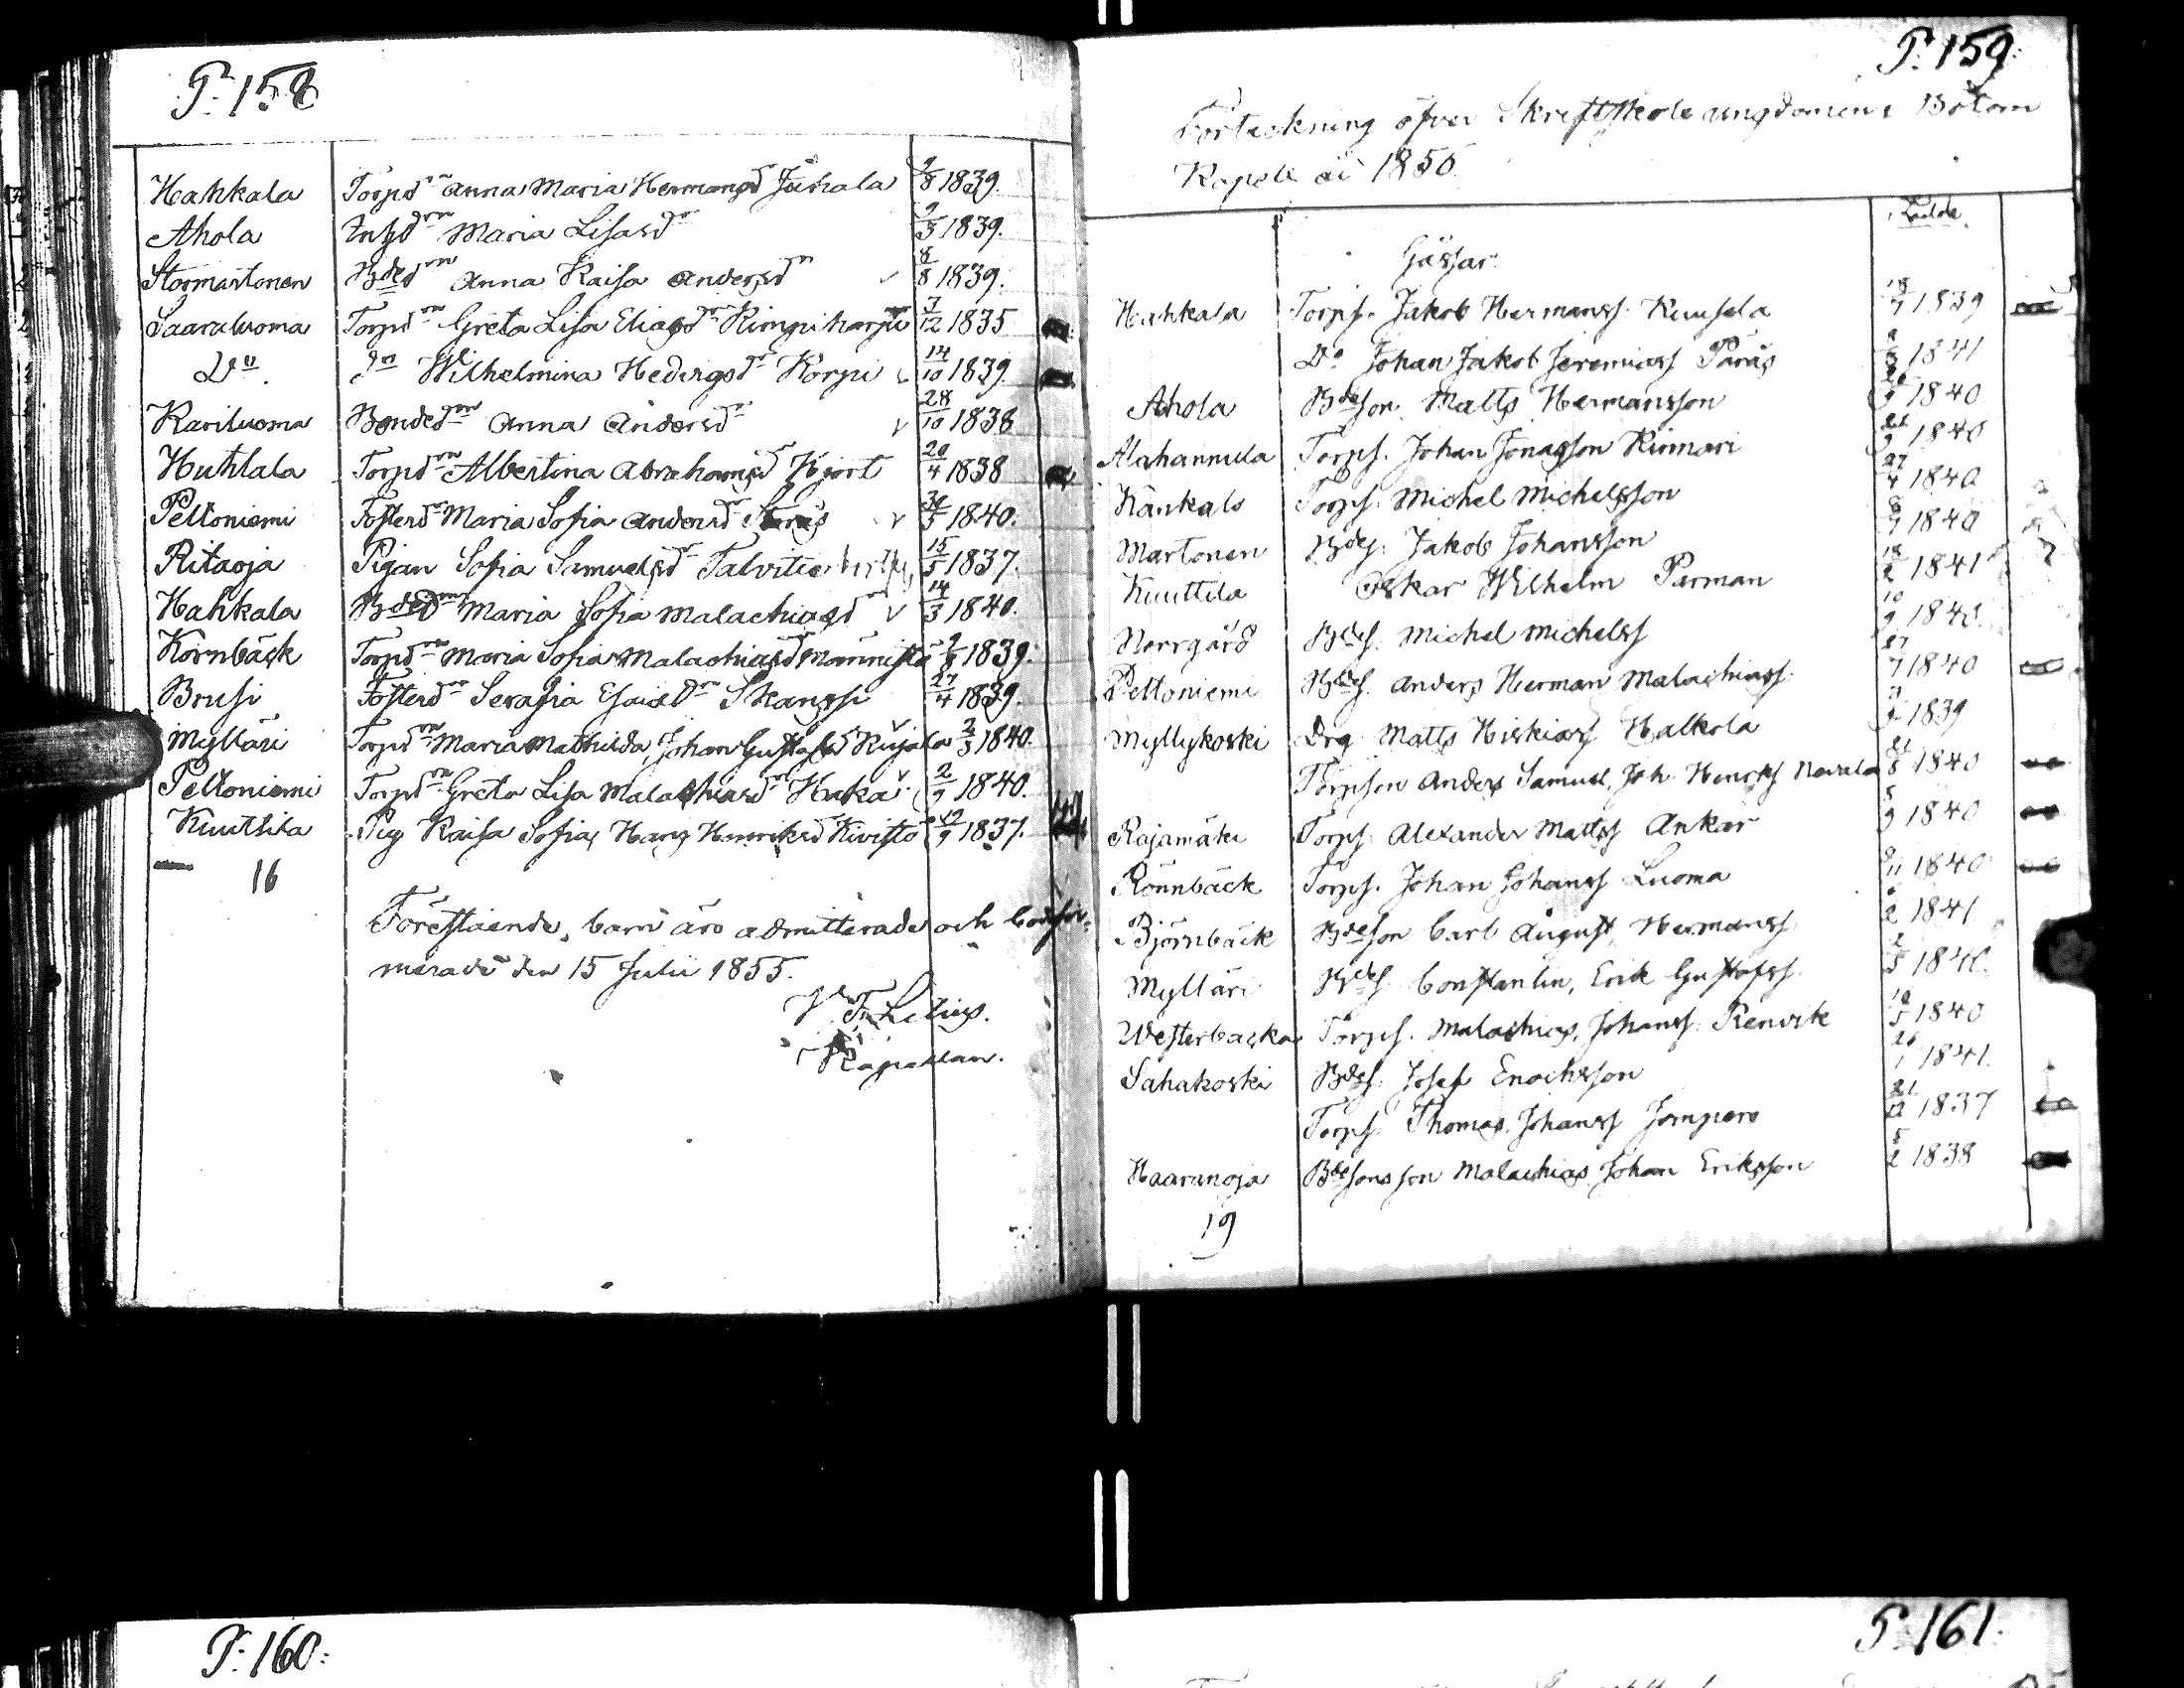 P. 158
Hahkala Torpd:rn Anna Maria Hermansd:r Juhala 9/8 1839.
Ahola Maria Lisasd:r 9/3 1839.
Stormartonen Bded:rn Anna Kaisa Andersd:r 8/8 1839.
Saaraluoma Torpd:rn Greta Lisa Eliasd:r Rimpiharju 7/12 1835
D:o D:o Wilhelmina Hedvigsd:r Korpi 14/10 1839.
Kariluoma Bonded:rn Anna Andersd:r v 28/10 1838
Huhtala Torpd:rn Albertina Abrahamsd:r Hjort 20/4 1838
Peltoniemi Fosterd:rn Maria Sofia Andersd:r v 1840.
Ritaoja Pigan Sofia Samuelsd:r Talvitie 15/5 1837.
Hahkala Bded:rn Maria Sofia Malachiasd:r v 14/3 1840.
Maria Sofia Malachiasd:r Männistö 9/8 1839.
Brusi Fosterd:rn Serafia Esaiæd:r Skanssi 27/4 1839.
Mylläri Torpd:rn Maria Mathilda, Johan Gustafsd:r Kujala 2/3 1840.
Peltoniemi Torpd:rn Greta Lisa Malachiasd:r Haka v 2/9 1840.
Kuuttila Pig Kaisa Sofia, Hans Henriksd:r Kivistö 1837.
16
Förestående barn äro admitterade och confir-
merade den 15 Julii 1855.
Kapellan.
P. 159.
Förteckning öfver Skriftskole ungdomen i Botom
Kapell år 1856.
Födde
Gossar.
Hahkala Torps. Jakob Hermanss. Kuusela 1839
D:o Johan Jakob Jeremiass Parås 1841
Ahola Bdeson Matts Hermansson 1840
Alahannula Torps. Johan Jonasson Kinnari 1840
Känkals Torps. Michel Michelsson 27/4 1840
Martonen Bdes. Jakob Johansson 1840
Kuuttila Oskar Wilhelm Parman 18/2 1841
Norrgård Bdes. Michel Michelss 10/9 1840.
Peltoniemi Bdes. Anders Herman Malachiass. 1840
Myllykoski Drg Matts Hiskiass Halkola 1839
Torpson Anders Samuel, Joh. Henrss 1840
Rajamäki Torps. Alexander Mattss Ankar 5/9 1840
Rönnbäck Torps. Johan Johanss Luoma 1840
Björnbäck Bdeson Carl August Hermanss. 1841
Mylläri Bdes. Constantin, Erik Gustafss. 1840.
Westerbacka Torps. Malachias, Johanss. Renvik 1840
Sahakoski Bdes. Josef Enochsson 1841.
Torps. Thomas Johanss Jompero 21/12 1837
Haaranoja Bdesons son Malachias Johan Eriksson 5/2 1838
19
P. 160.
P. 161.